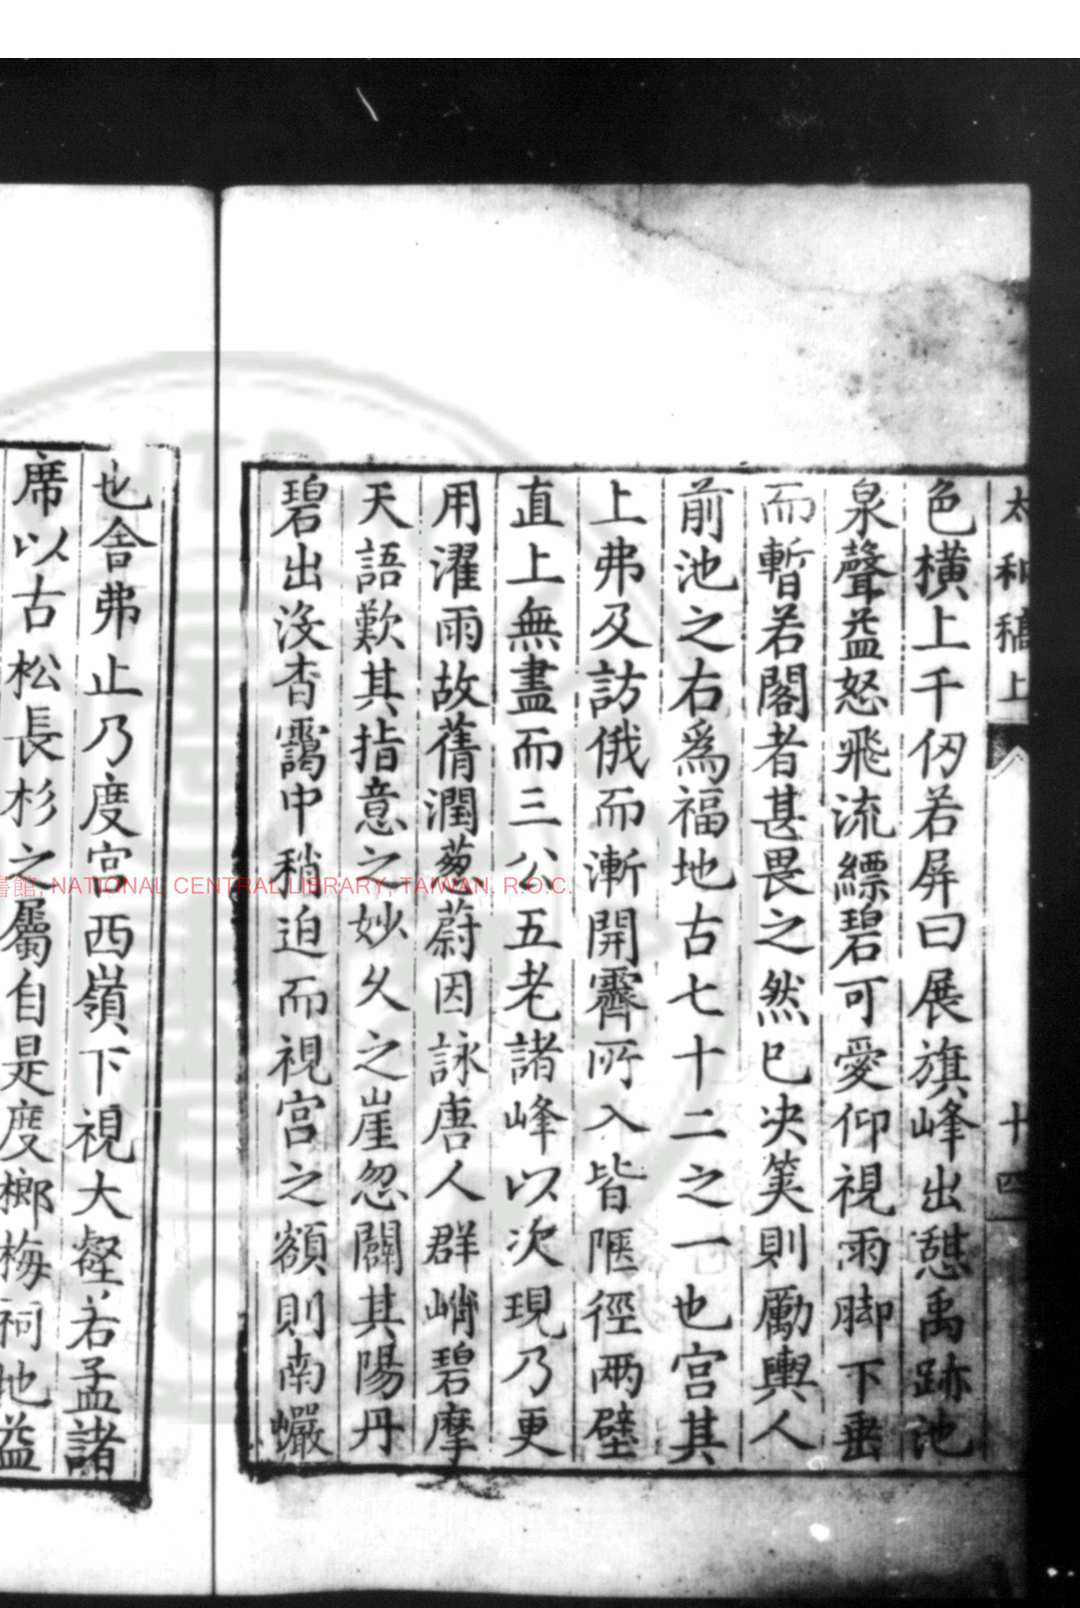 太和稿上
十四
色橫上千仞若屏曰展旗峰出憇禹跡池
泉聲益怒飛流縹碧可愛仰視雨脚下垂
而暫若閣者甚畏之然已决筴則勵輿人
前池之右爲福地古七十二之一也宫其
上弗及訪俄而漸開霽所入皆陿徑兩壁
直上無盡而三公五老諸峰以次現乃更
用濯雨故蒨潤葱蔚因詠唐人群峭碧摩
天語歎其指意之妙久之崖忽闢其陽丹
碧出沒杳靄中稍迫而視宫之額則南巖
也舍弗止乃度宫西嶺下視大壑若孟諸
席以古松長杉之屬自是度榔梅祠地益
書館, NATIONAL CENTRAL LIBRARY, TAIWAN, R.O.C.